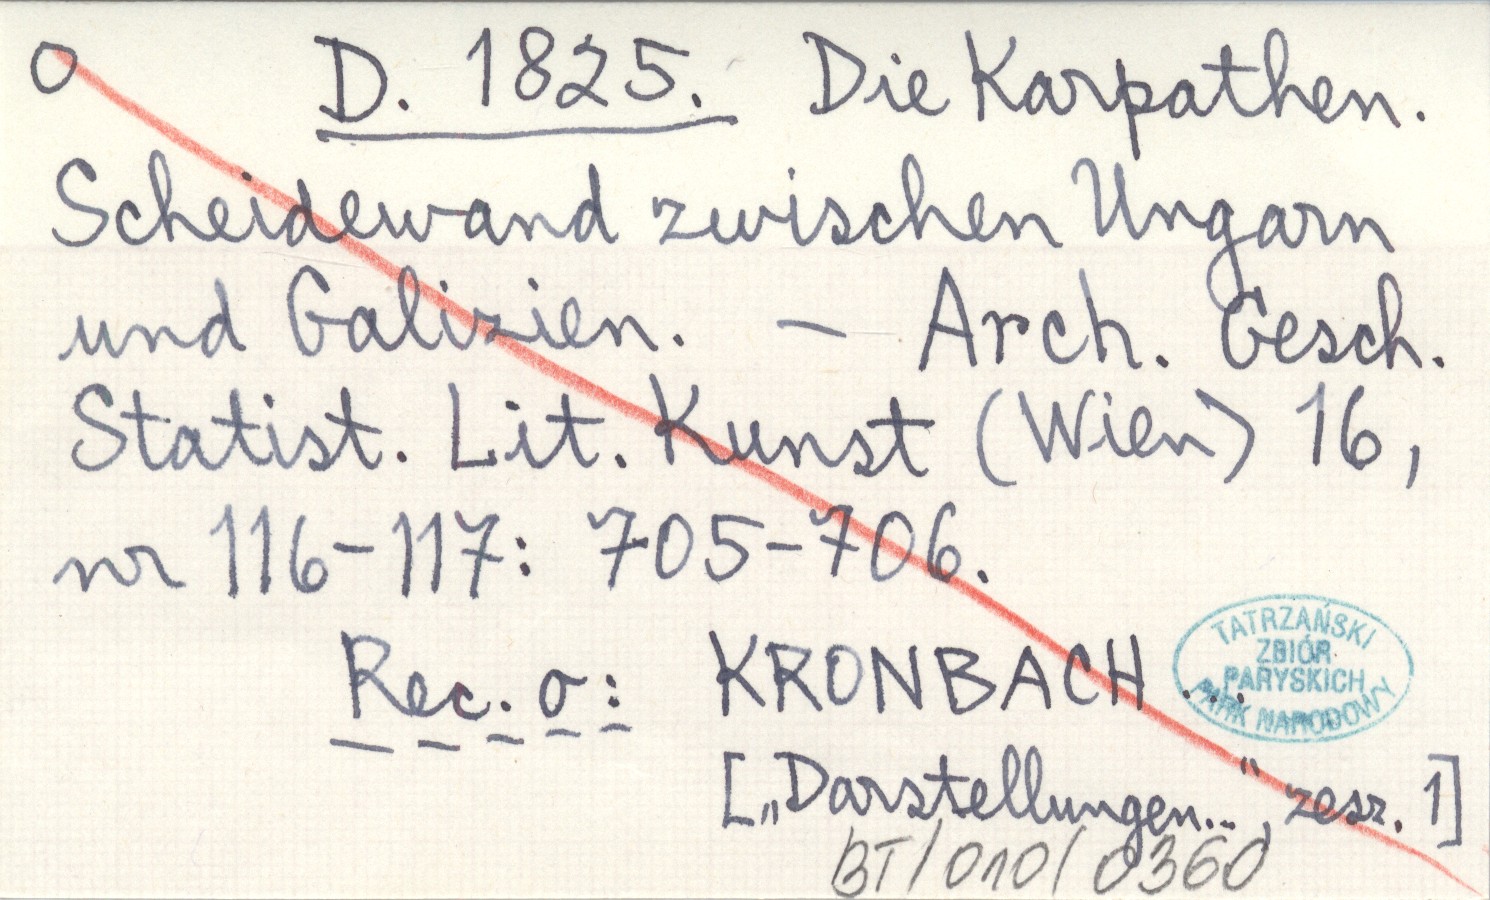 o D. 1825. Die Karpathen.
Scheidewand zwischen Ungarn
und Galizien. – Arch. Gesch.
Statist. Lit. Kunst (Wien) 16,
nr 116-117: 705-706.
Rec. o: KRONBACH ...
TATRZAŃSKI
ZBIÓR
PARYSKICH
PARK NARODOWY
[„Darstellungen...”, zesz. 1]
BT/010/0360